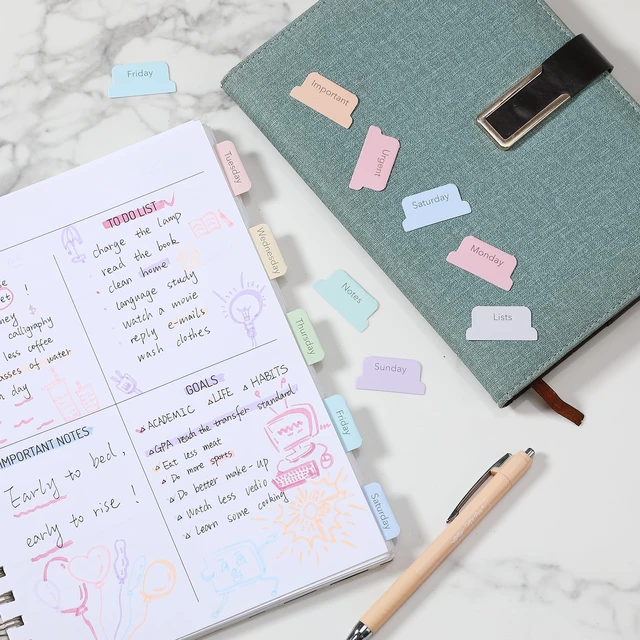 Friday
Important
Urgent
Saturday
Monday
Notes
Lists
Sunday
Tuesday
Wednesday
Thursday
Friday
Saturday
TO DO LIST
charge the lamp
read the book
clean home
language study
watch a movie
reply e-mails
wash clothes
!
calligraphy
less coffee
of water
day
GOALS
ACADEMIC LIFE HABITS
GPA reach the transfer standard
Eat less meat
Do more sports
Do better make-up
Watch less vedio
Learn some cooking
IMPORTANT NOTES
Early to bed,
early to rise !